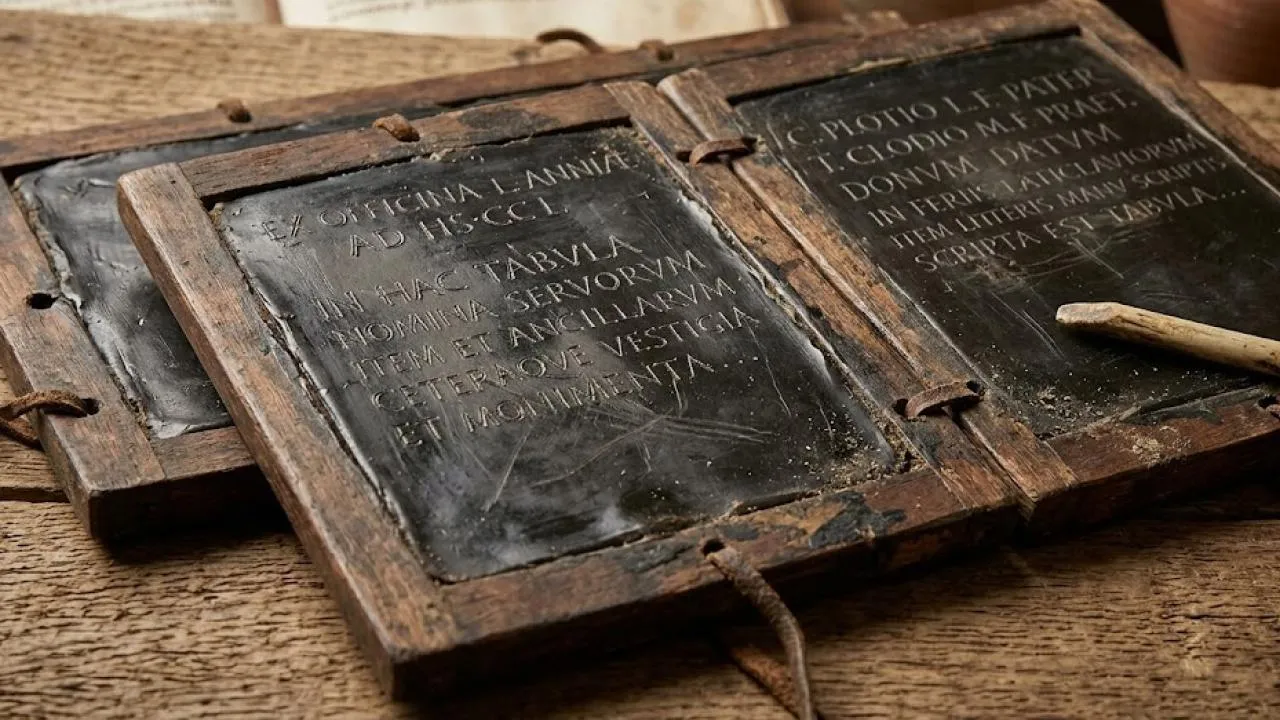 EX OFFICINA L. ANNIAE
AD HS·CCL
IN HAC TABVLA
NOMINA SERVORVM
ITEM ET ANCILLARVM
CETERAQVE VESTIGIA
ET MONIMENTA...
C. PLOTIO L. F. PATER
T. CLODIO M. F. PRAET.
DONVM DATVM
IN FERIIS LATICLAVIORVM
ITEM LITTERIS MANV SCRIPTIS
SCRIPTA EST TABVLA...